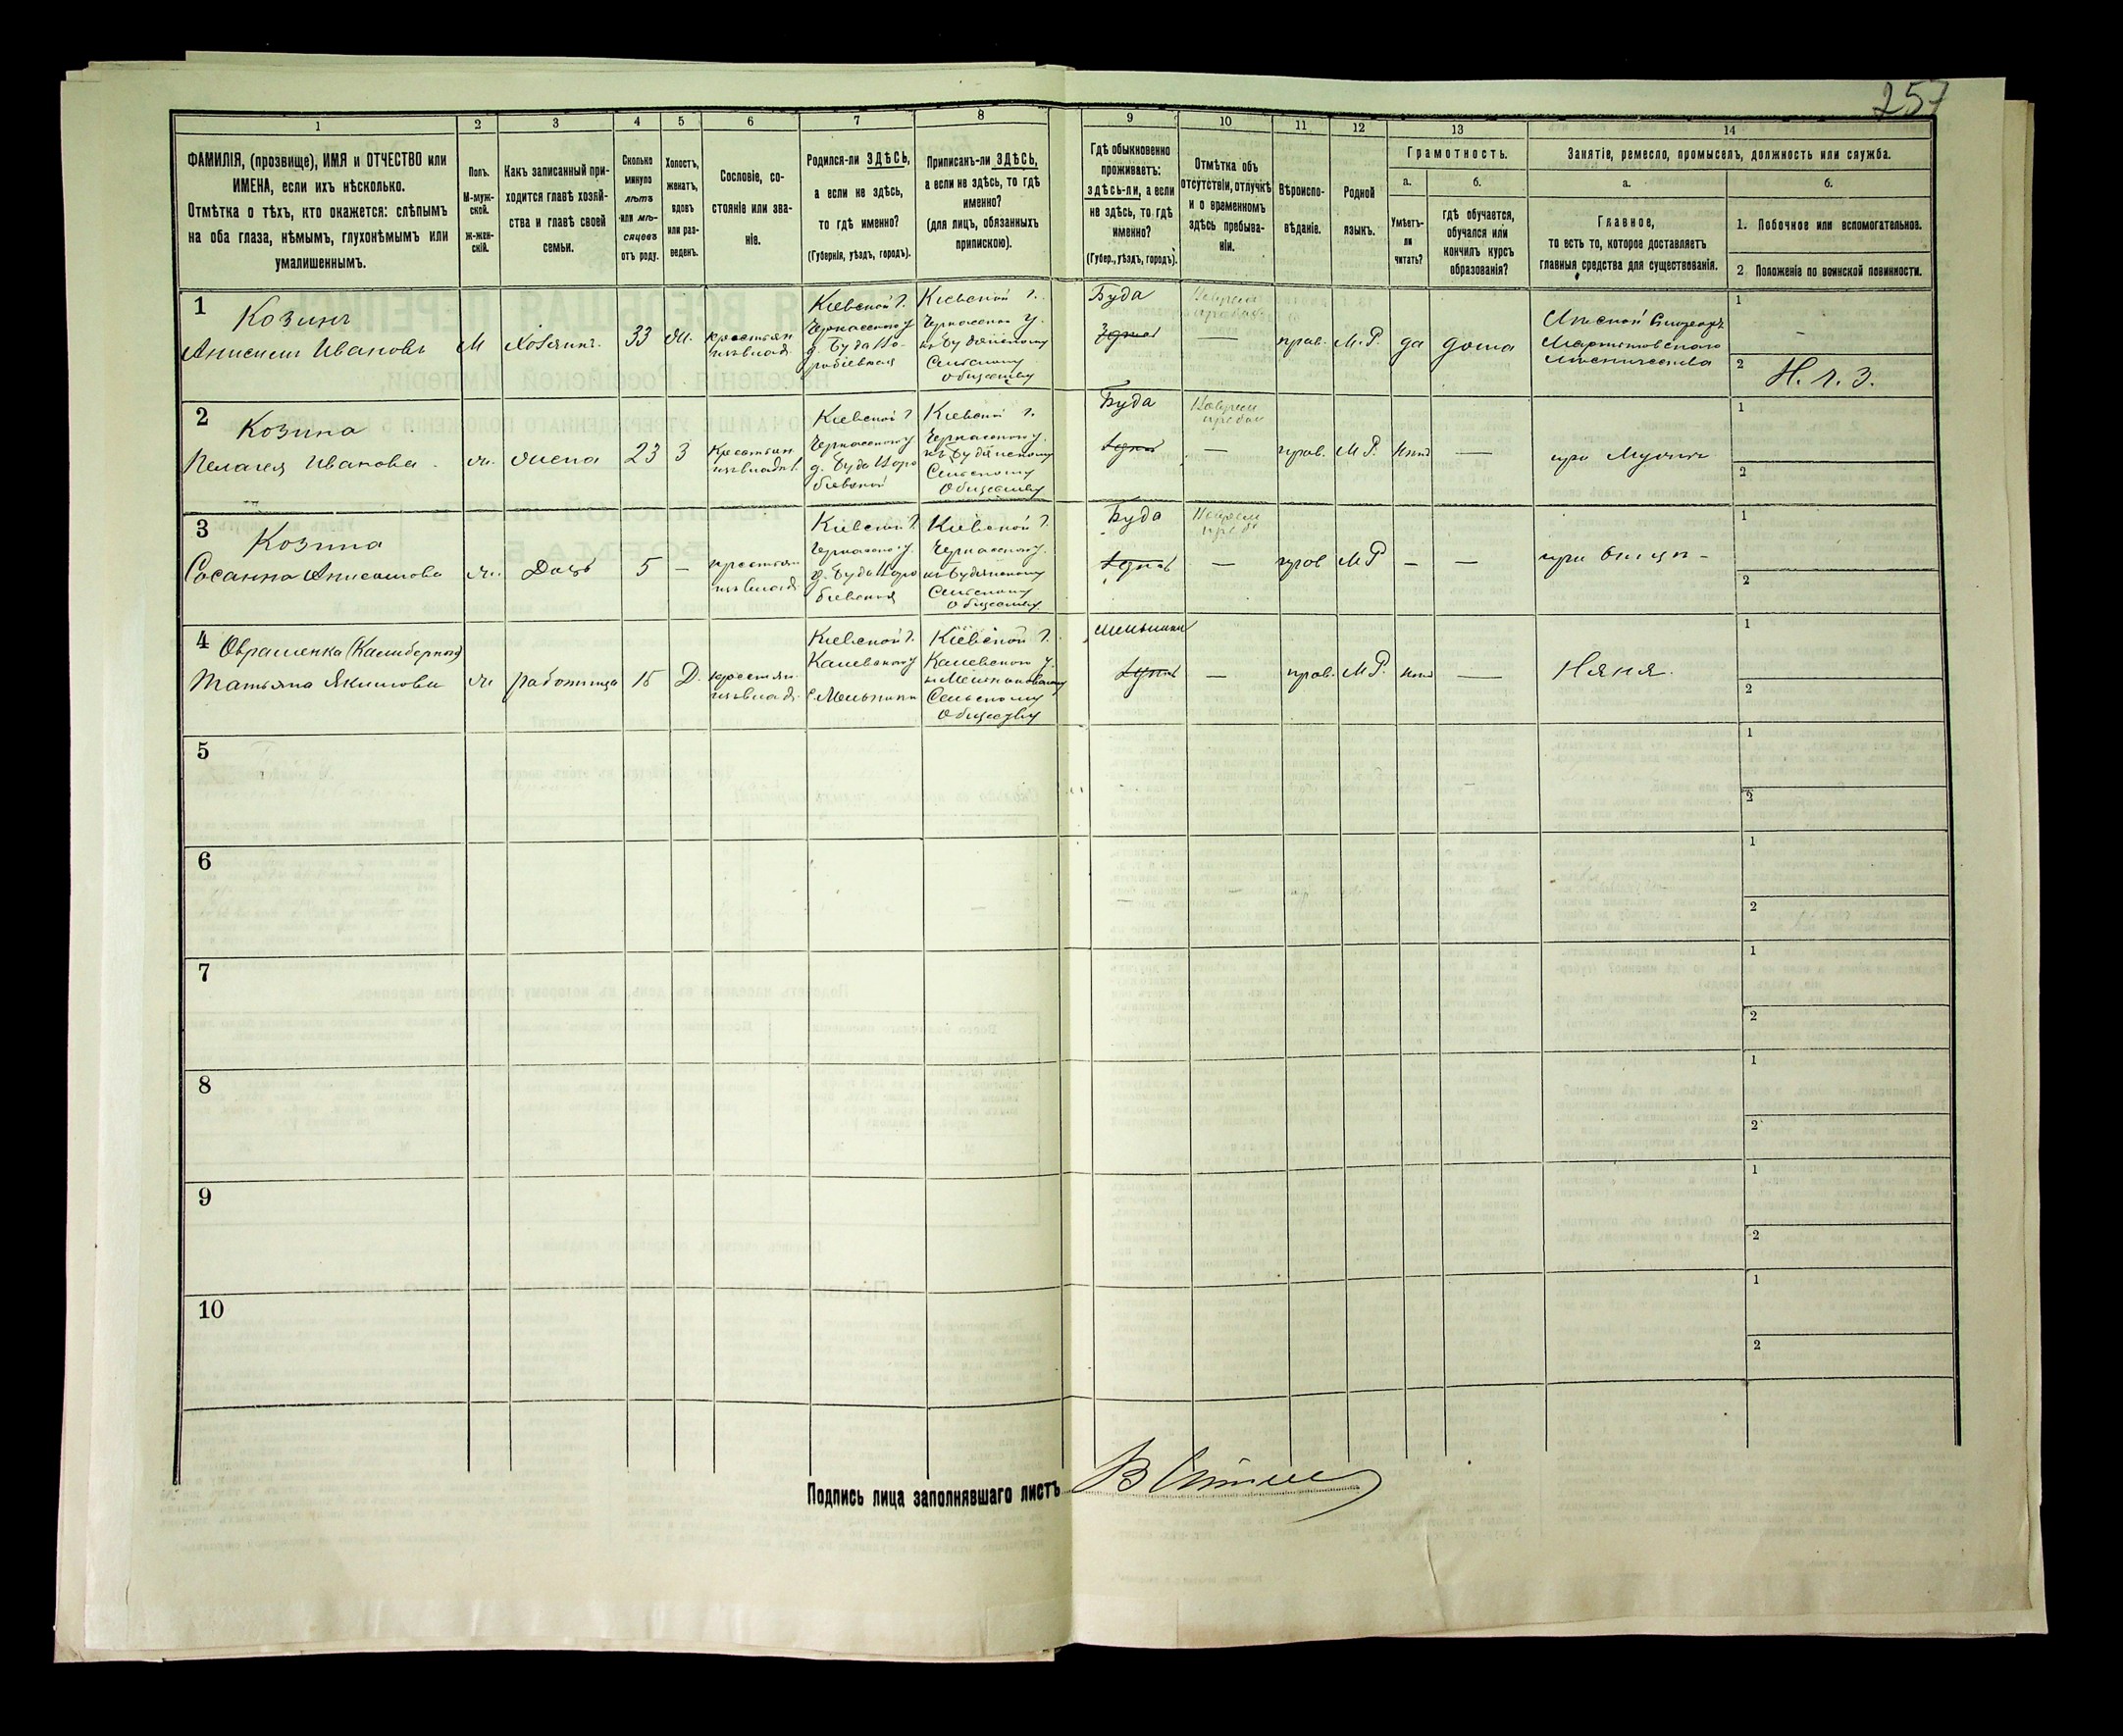 257
1 2 3 4 5 6 7 8 9 10 11 12 13 14
ФАМИЛІЯ, (прозвище), ИМЯ и ОТЧЕСТВО или
ИМЕНА, если ихъ нѣсколько.
Отмѣтка о тѣхъ, кто окажется: слѣпымъ
на оба глаза, нѣмымъ, глухонѣмымъ или
умалишеннымъ.
Полъ.
М-муж-
ской.
ж-жен-
скій.
Какъ записанный при-
ходится главѣ хозяй-
ства и главѣ своей
семьи.
Сколько
минуло
лѣтъ
или мѣ-
сяцевъ
отъ роду.
Холостъ,
женатъ,
вдовъ
или раз-
веденъ.
Сословіе, со-
стояніе или зва-
ніе.
Родился-ли ЗДѢСЬ,
а если не здѣсь,
то гдѣ именно?
(Губернія, уѣздъ, городъ).
Приписанъ-ли ЗДѢСЬ,
а если не здѣсь, то гдѣ
именно?
(для лицъ, обязанныхъ
припискою).
Гдѣ обыкновенно
проживаетъ:
здѣсь-ли, а если
не здѣсь, то гдѣ
именно?
(Губер., уѣздъ, городъ).
Отмѣтка объ
отсутствіи, отлучкѣ
и о временномъ
здѣсь пребыва-
ніи.
Вѣроиспо-
вѣданіе.
Родной
языкъ.
Грамотность.
а.
Умѣетъ-
ли
читать?
б.
гдѣ обучается,
обучался или
кончилъ курсъ
образованія?
Занятіе, ремесло, промыселъ, должность или служба.
а.
Главное,
то есть то, которое доставляетъ
главныя средства для существованія.
б.
1. Побочное или вспомогательное.
2 Положеніе по воинской повинности.
1
Козинъ
Анисимъ Ивановъ
М
хозяинъ
33
ж.
крестьян
изъ влад.
Кіевской г.
Черкасскаго у
д. Буда Во-
робіевская
Кіевской г.
Черкасскаго у.
къ Будянскому
Сельскому
Обществу
Буда
здѣсь
—
прав.
М.Р.
да
дома
Лѣсной
Лѣсничества
1 -
2 Н. ч. 3.
2
Козина
Пелагея Иванова
ж.
жена
23
З
Крестьян
изъ влад.
Кіевской г
Черкасскаго у
д. Буда Воро
біевской
Кіевской г.
Черкасскаго у.
къ Будянскому
Сельскому
Обществу
Буда
здѣсь
—
прав.
М.Р.
нѣтъ
—
при мужѣ
1
2
3
Козина
Сосанна Анисимова
ж.
Дочь
5
—
крестьян
изъ влад
Кіевской г.
Черкасскаго у.
д. Буда Воро
біевская
Кіевской г.
Черкасскаго у.
къ Будянскому
Сельскому
Обществу
Буда
здѣсь
—
прав
М.Р
—
—
при отцѣ
1
2
4
Татьяна Якимова
ж
работница
15
Д.
крестьян.
изъ влад.
Кіевской г.
Каневскаго у
с. Мельники
Кіевской г.
Каневскаго у.
Сельскому
Обществу
Мельники
здѣсь
—
прав.
М.Р.
нѣтъ
—
Няня.
1
2
5
1
2
6
1
2
7
1
2
8
1
2
9
1
2
10
1
2
Подпись лица заполнявшаго листъ